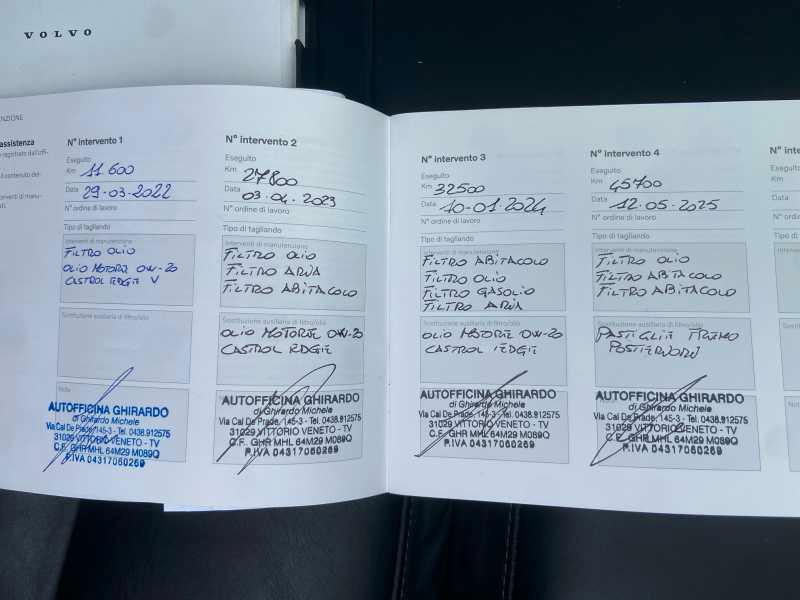 VOLVO
assistenza
N° intervento 1
Eseguito
Km 11600
Data 29-03-2022
N° ordine di lavoro
Tipo di tagliando
Interventi di manutenzione
FILTRO OLIO
OLIO MOTORE 0W-20
CASTROL EDGE V
Sostituzione ausiliaria di filtro/olio
Note
AUTOFFICINA GHIRARDO
di Ghirardo Michele
Via Cal De Prade, 145-3 - Tel. 0438.912575
31029 VITTORIO VENETO - TV
C.F. GHR MHL 64M29 M089Q
P.IVA 04317060269
N° intervento 2
Eseguito
Km 27800
Data 03-04-2023
N° ordine di lavoro
Tipo di tagliando
Interventi di manutenzione
FILTRO OLIO
FILTRO ARIA
FILTRO ABITACOLO
Sostituzione ausiliaria di filtro/olio
OLIO MOTORE 0W-20
CASTROL EDGE
AUTOFFICINA GHIRARDO
di Ghirardo Michele
Via Cal De Prade, 145-3 - Tel. 0438.912575
31029 VITTORIO VENETO - TV
C.F. GHR MHL 64M29 M089Q
P.IVA 04317060269
N° intervento 3
Eseguito
Km 32500
Data 10-01-2024
N° ordine di lavoro
Tipo di tagliando
Interventi di manutenzione
FILTRO ABITACOLO
FILTRO OLIO
FILTRO GASOLIO
FILTRO ARIA
Sostituzione ausiliaria di filtro/olio
OLIO MOTORE 0W-20
CASTROL EDGE
AUTOFFICINA GHIRARDO
di Ghirardo Michele
Via Cal De Prade, 145-3 - Tel. 0438.912575
31029 VITTORIO VENETO - TV
C.F. GHR MHL 64M29 M089Q
P.IVA 04317060269
N° intervento 4
Eseguito
Km 45700
Data 12.05-2025
N° ordine di lavoro
Tipo di tagliando
Interventi di manutenzione
FILTRO OLIO
FILTRO ABITACOLO
FILTRO ABITACOLO
Sostituzione ausiliaria di filtro/olio
PASTIGLIE FRENO
POSTERIORI
AUTOFFICINA GHIRARDO
di Ghirardo Michele
Via Cal De Prade, 145-3 - Tel. 0438.912575
31029 VITTORIO VENETO - TV
C.F. GHR MHL 64M29 M089Q
P.IVA 04317060269
N° inte
Eseguito
Km
Data